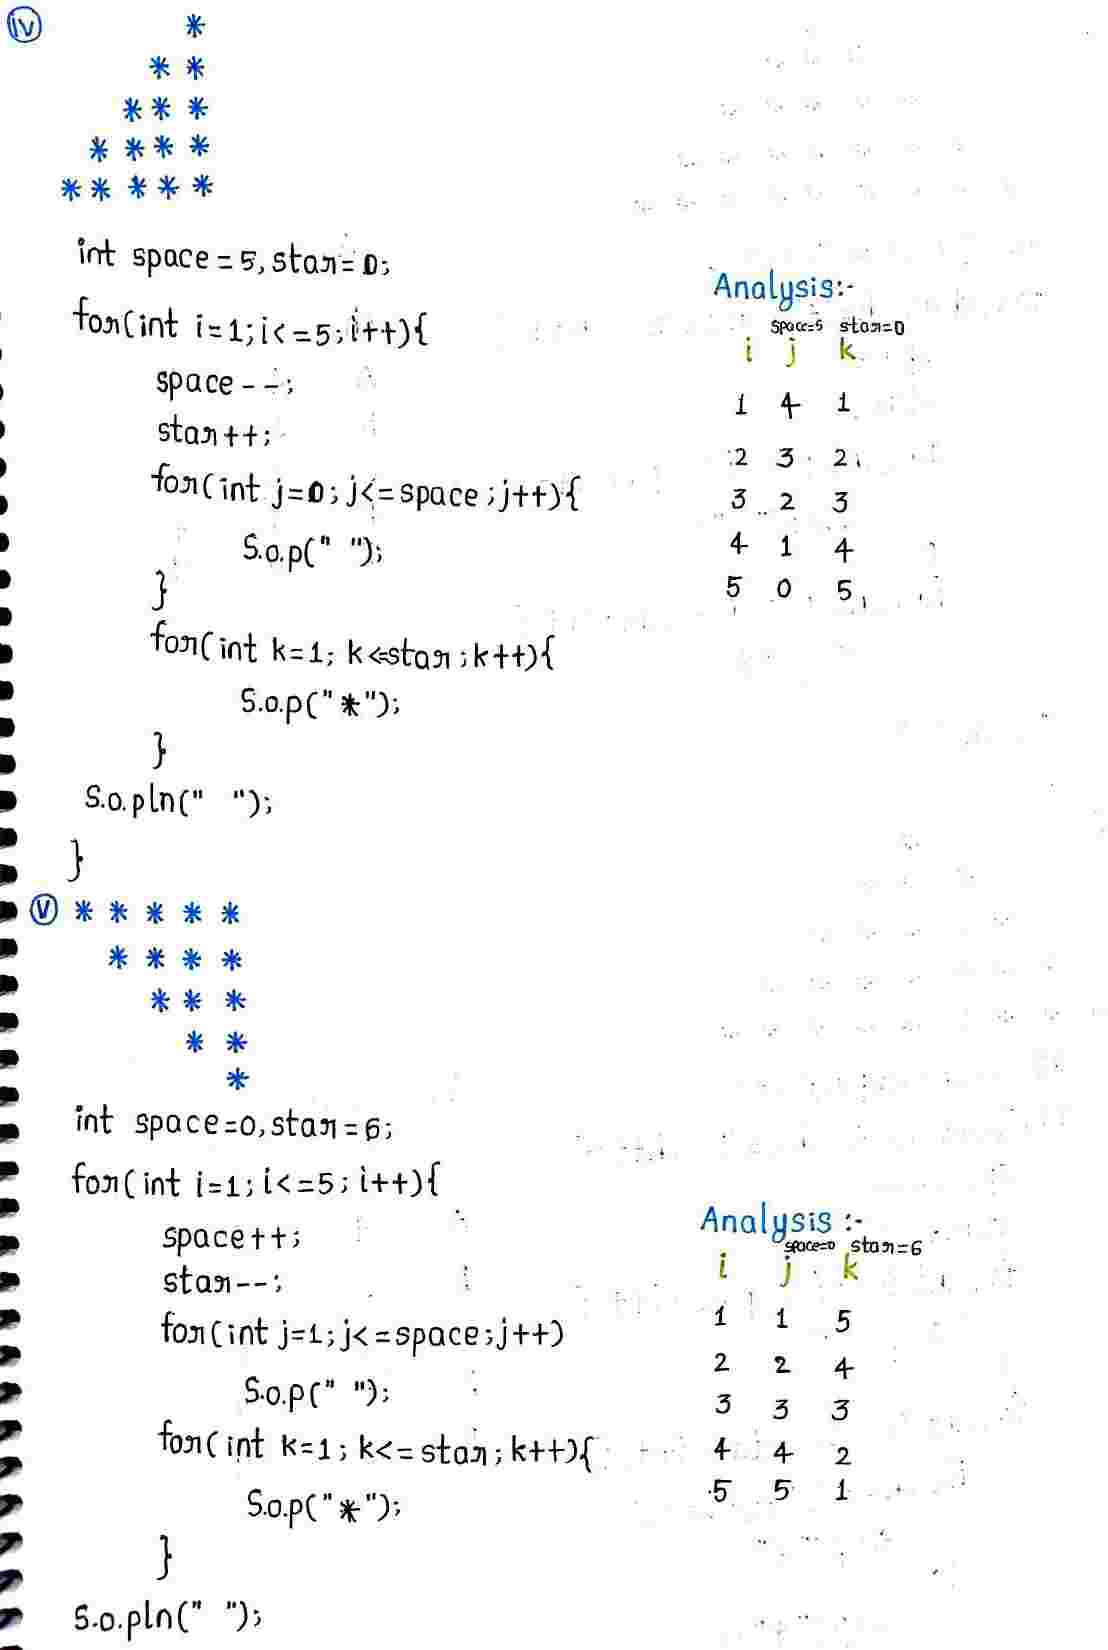 iv
*
* *
* * *
* * * *
* * * * *
int space = 5, star = 0;
for(int i=1; i<=5; i++){
space--;
star++;
for(int j=0; j<=space; j++){
S.o.p(" ");
}
for(int k=1; k<=star; k++){
S.o.p("*");
}
S.o.pln(" ");
}
Analysis:-
space=5 star=0
i j k
1 4 1
2 3 2
3 2 3
4 1 4
5 0 5
v * * * * *
* * * *
* * *
* *
*
int space=0, star=6;
for(int i=1; i<=5; i++){
space++;
star--;
for(int j=1; j<=space; j++)
S.o.p(" ");
for(int k=1; k<=star; k++){
S.o.p("*");
}
S.o.pln(" ");
Analysis :-
space=0 star=6
i j k
1 1 5
2 2 4
3 3 3
4 4 2
5 5 1